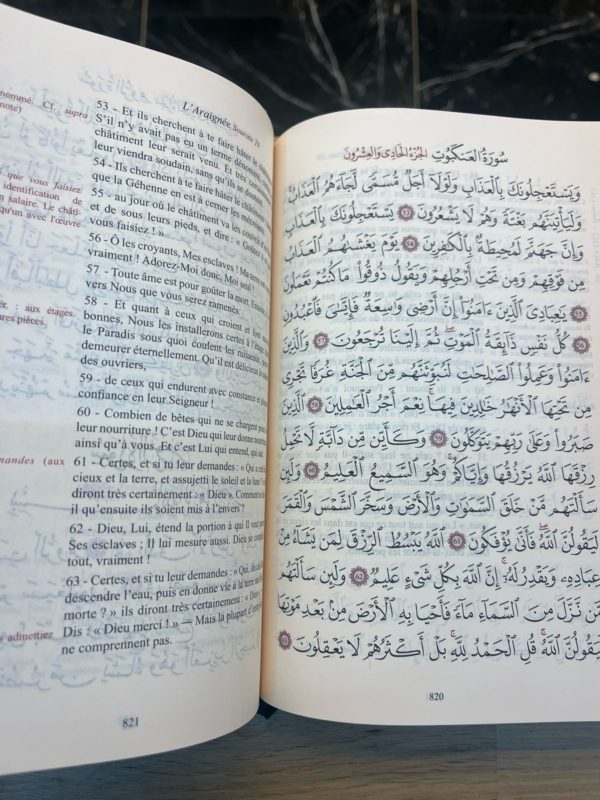 سُورَةُ العَنكَبُوت الجُزءُ الحَادِى وَالعِشرُون
وَيَسْتَعْجِلُونَكَ بِٱلْعَذَابِ وَلَوْلَآ أَجَلٌ مُّسَمًّى لَّجَآءَهُمُ ٱلْعَذَابُ
وَلَيَأْتِيَنَّهُم بَغْتَةً وَهُمْ لَا يَشْعُرُونَ ٥٣ يَسْتَعْجِلُونَكَ بِٱلْعَذَابِ
وَإِنَّ جَهَنَّمَ لَمُحِيطَةٌۢ بِٱلْكَٰفِرِينَ ٥٤ يَوْمَ يَغْشَىٰهُمُ ٱلْعَذَابُ
مِن فَوْقِهِمْ وَمِن تَحْتِ أَرْجُلِهِمْ وَيَقُولُ ذُوقُوا۟ مَا كُنتُمْ تَعْمَلُونَ
٥٥ يَٰعِبَادِىَ ٱلَّذِينَ ءَامَنُوٓا۟ إِنَّ أَرْضِى وَٰسِعَةٌ فَإِيَّٰىَ فَٱعْبُدُونِ
٥٦ كُلُّ نَفْسٍ ذَآئِقَةُ ٱلْمَوْتِ ۖ ثُمَّ إِلَيْنَا تُرْجَعُونَ ٥٧ وَٱلَّذِينَ
ءَامَنُوا۟ وَعَمِلُوا۟ ٱلصَّٰلِحَٰتِ لَنُبَوِّئَنَّهُم مِّنَ ٱلْجَنَّةِ غُرَفًا تَجْرِى
مِن تَحْتِهَا ٱلْأَنْهَٰرُ خَٰلِدِينَ فِيهَا ۚ نِعْمَ أَجْرُ ٱلْعَٰمِلِينَ ٥٨ ٱلَّذِينَ
صَبَرُوا۟ وَعَلَىٰ رَبِّهِمْ يَتَوَكَّلُونَ ٥٩ وَكَأَيِّن مِّن دَآبَّةٍ لَّا تَحْمِلُ
رِزْقَهَا ٱللَّهُ يَرْزُقُهَا وَإِيَّاكُمْ ۚ وَهُوَ ٱلسَّمِيعُ ٱلْعَلِيمُ ٦٠ وَلَئِن
سَأَلْتَهُم مَّنْ خَلَقَ ٱلسَّمَٰوَٰتِ وَٱلْأَرْضَ وَسَخَّرَ ٱلشَّمْسَ وَٱلْقَمَرَ
لَيَقُولُنَّ ٱللَّهُ ۖ فَأَنَّىٰ يُؤْفَكُونَ ٦١ ٱللَّهُ يَبْسُطُ ٱلرِّزْقَ لِمَن يَشَآءُ مِنْ
عِبَادِهِۦ وَيَقْدِرُ لَهُۥٓ ۚ إِنَّ ٱللَّهَ بِكُلِّ شَىْءٍ عَلِيمٌ ٦٢ وَلَئِن سَأَلْتَهُم
مَّن نَّزَّلَ مِنَ ٱلسَّمَآءِ مَآءً فَأَحْيَا بِهِ ٱلْأَرْضَ مِنۢ بَعْدِ مَوْتِهَا
لَيَقُولُنَّ ٱللَّهُ ۚ قُلِ ٱلْحَمْدُ لِلَّهِ ۚ بَلْ أَكْثَرُهُمْ لَا يَعْقِلُونَ ٦٣
820
L'Araignée Sourate 29
53 - Et ils cherchent à te faire hâter le châtiment
S'il n'y avait pas eu un terme dénommé, le
châtiment leur serait venu. Et très certainement il
leur viendra soudain, sans qu'ils se doutent
54 - Ils cherchent à te faire hâter le châtiment
que la Géhenne en est à cerner les mécréants
55 - au jour où le châtiment va les couvrir d'en haut
et de sous leurs pieds, et dire : « Goûtez
vous faisiez ! »
56 - Ô les croyants, Mes esclaves ! Ma terre
vraiment ! Adorez-Moi donc, Moi seul !
57 - Toute âme est pour goûter la mort. Ensuite
vers Nous que vous serez ramenés.
58 - Et quant à ceux qui croient et font
bonnes, Nous les installerons certes à l'étage
le Paradis sous quoi coulent les ruisseaux,
demeurer éternellement. Qu'il est délicieux, le
des ouvriers,
59 - de ceux qui endurent avec constance et
confiance en leur Seigneur !
60 - Combien de bêtes qui ne se chargent point de
leur nourriture ! C'est Dieu qui leur donne
ainsi qu'à vous. Et c'est Lui qui entend, qui sait.
61 - Certes, et si tu leur demandes : « Qui a créé les
cieux et la terre, et assujetti le soleil et la lune ? »
diront très certainement : « Dieu ». Comment se
il qu'ensuite ils soient mis à l'envers ?
62 - Dieu, Lui, étend la portion à qui Il veut
Ses esclaves ; Il lui mesure aussi. Dieu se connaît
tout, vraiment !
63 - Certes, et si tu leur demandes : « Qui, du ciel, fait
descendre l'eau, puis en donne vie à la terre
morte ? » ils diront très certainement : « Dieu »
Dis : « Dieu merci ! » — Mais la plupart d'entre eux
ne comprennent pas.
nommé. Cf. supra
note)
que vous faisiez
identification de
salaire. Le châti-
qu'un avec l'œuvre
: aux étages,
pièces.
(aux
admettiez
821